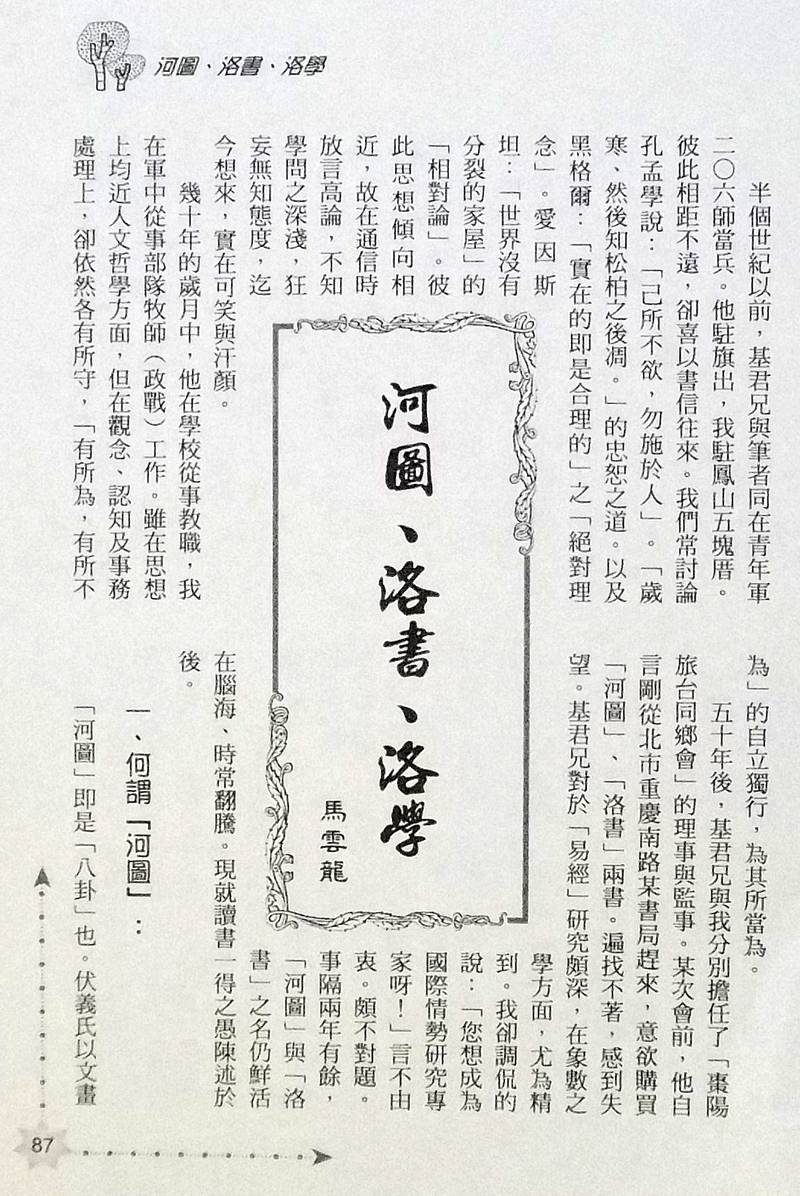 河圖、洛書、洛學
河圖、洛書、洛學
馬雲龍
半個世紀以前，基君兄與筆者同在青年軍
二〇六師當兵。他駐旗出，我駐鳳山五塊厝。
彼此相距不遠，卻喜以書信往來。我們常討論
孔孟學說：「己所不欲，勿施於人」。「歲
寒、然後知松柏之後凋。」的忠恕之道。以及
黑格爾：「實在的即是合理的」之「絕對理
念」。愛因斯
坦：「世界沒有
分裂的家屋」的
「相對論」。彼
此思想傾向相
近，故在通信時
放言高論，不知
學問之深淺，狂
妄無知態度，迄
今想來，實在可笑與汗顏。
幾十年的歲月中，他在學校從事教職，我
在軍中從事部隊牧師（政戰）工作。雖在思想
上均近人文哲學方面，但在觀念、認知及事務
處理上，卻依然各有所守，「有所為，有所不
為」的自立獨行，為其所當為。
五十年後，基君兄與我分別擔任了「棗陽
旅台同鄉會」的理事與監事。某次會前，他自
言剛從北市重慶南路某書局趕來，意欲購買
「河圖」、「洛書」兩書。遍找不著，感到失
望。基君兄對於「易經」研究頗深，在象數之
學方面，尤為精
到。我卻調侃的
說：「您想成為
國際情勢研究專
家呀！」言不由
衷。頗不對題。
事隔兩年有餘，
「河圖」與「洛
書」之名仍鮮活
在腦海、時常翻騰。現就讀書一得之愚陳述於
後。
一、何謂「河圖」：
「河圖」即是「八卦」也。伏義氏以文畫
87